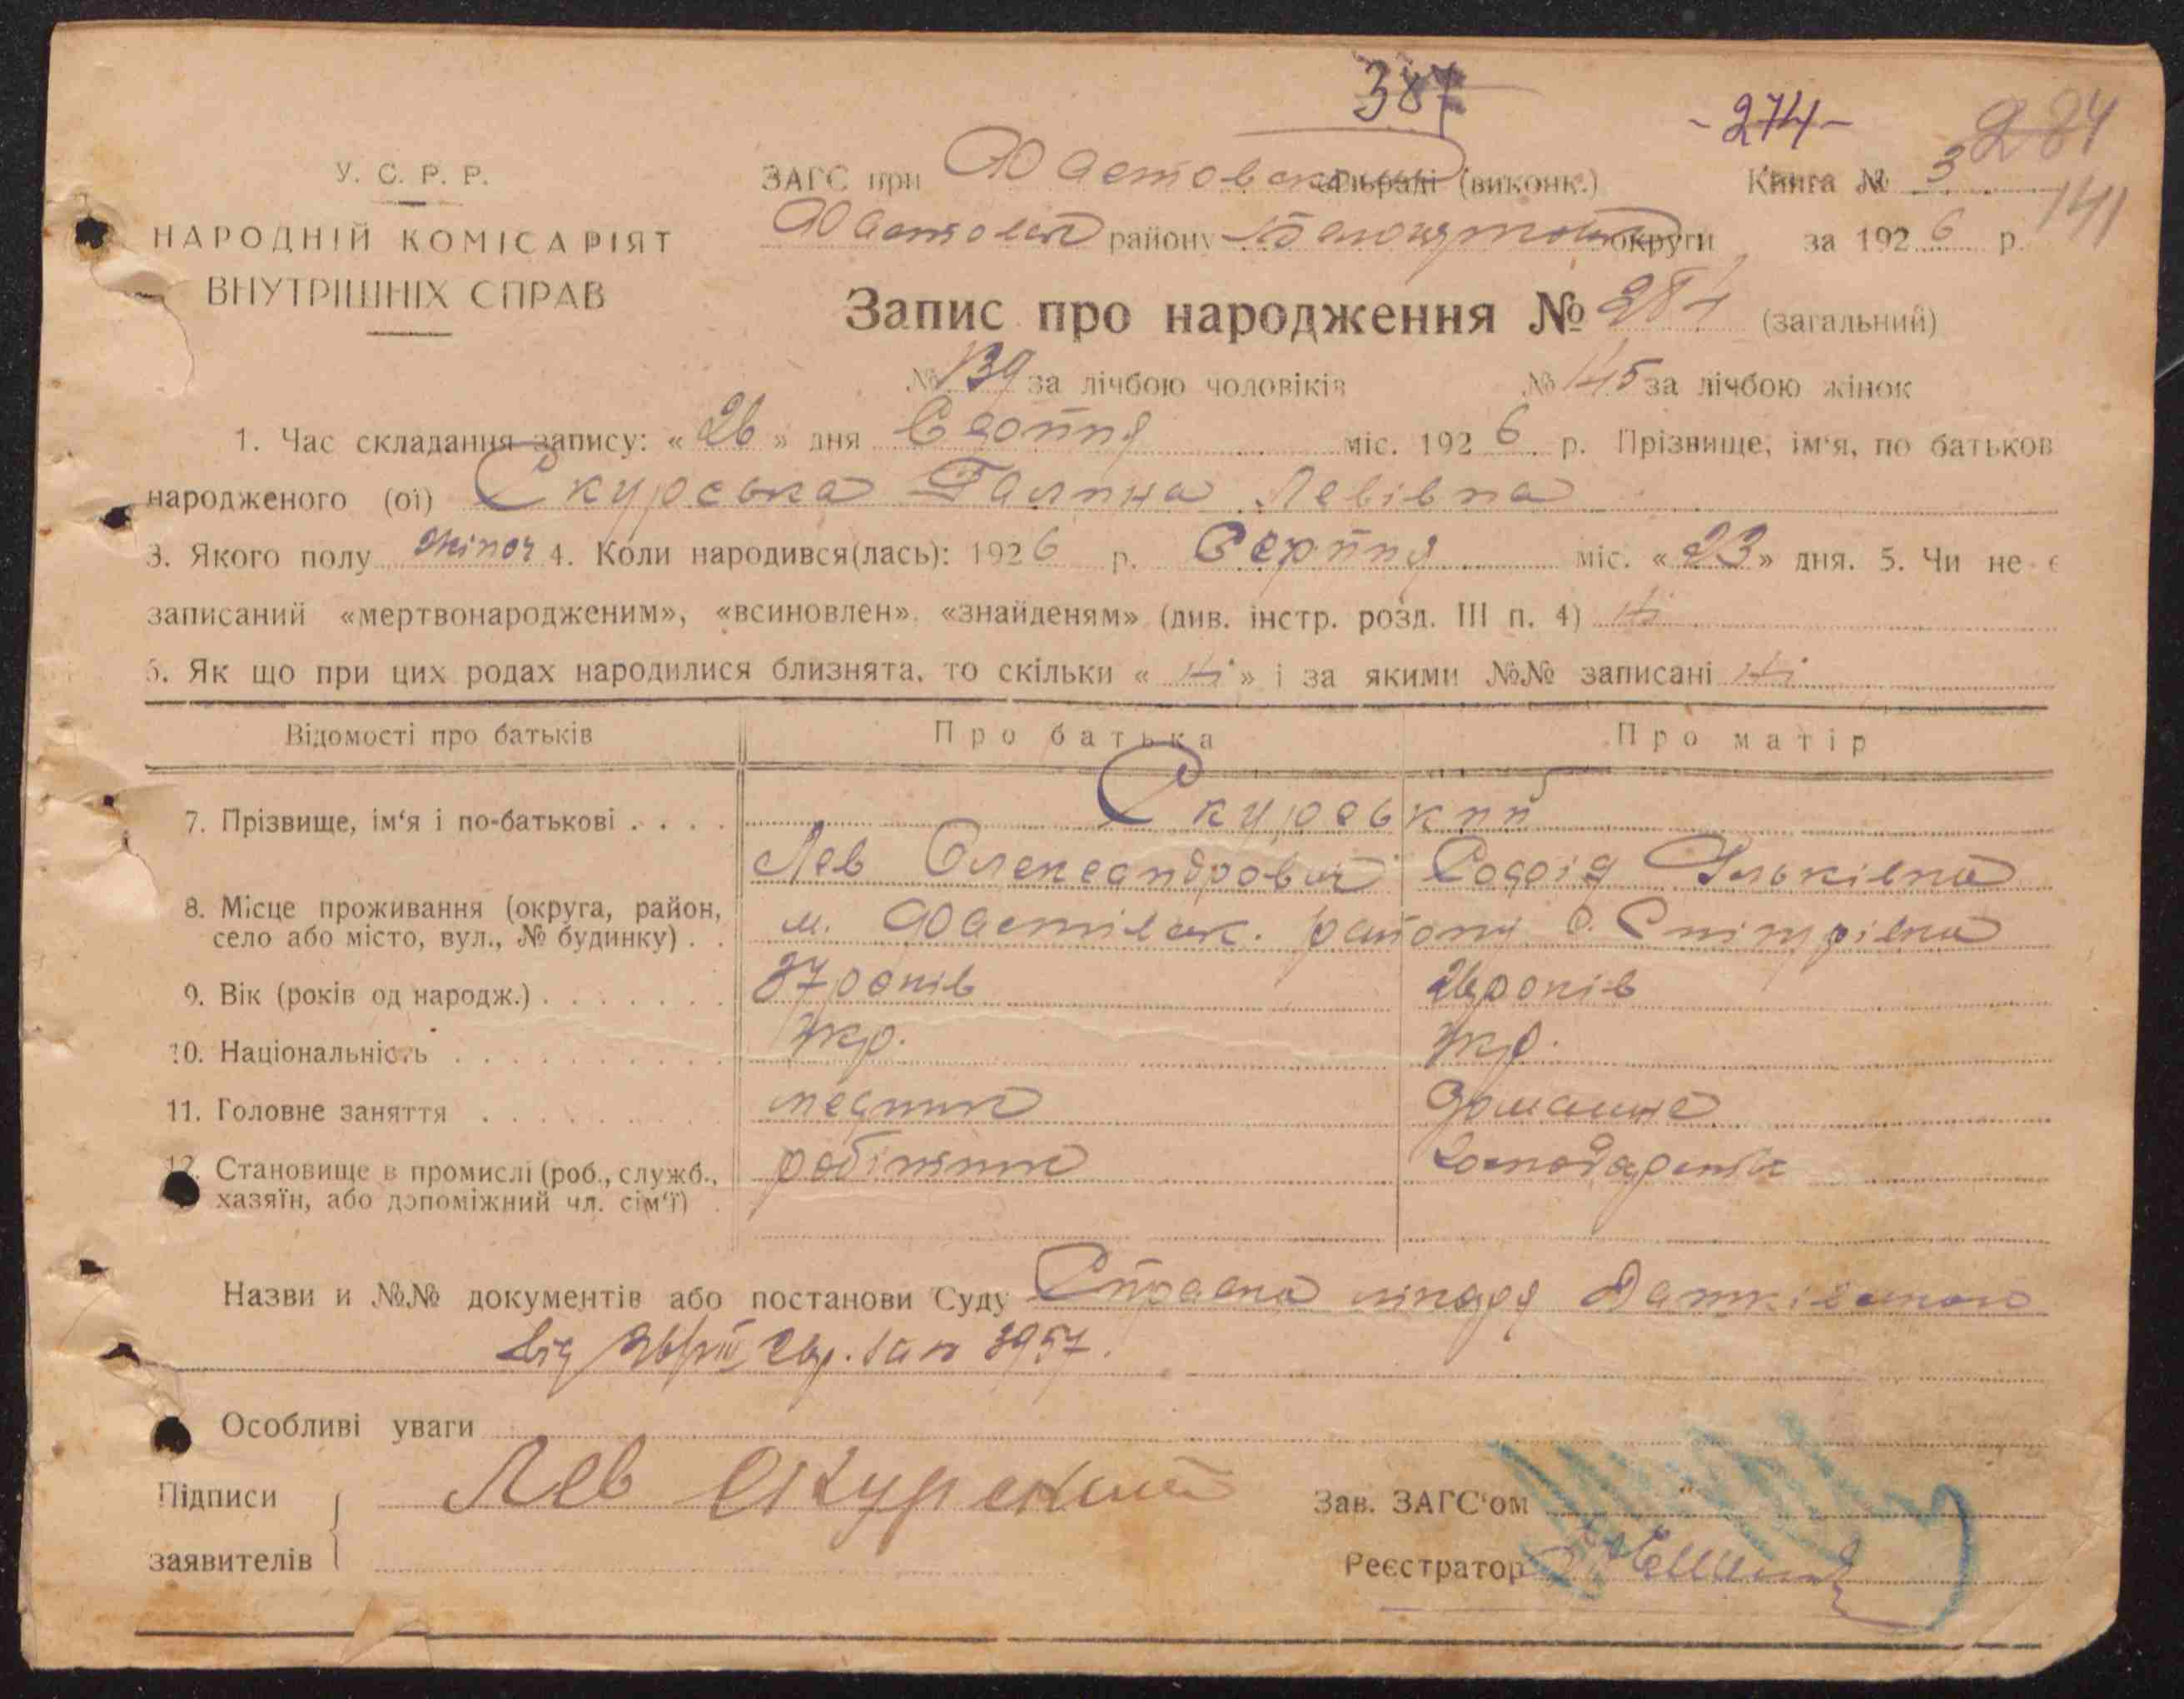 387
-274-
284
У. С. Р. Р.
ЗАГС при Фастовском сільраді (виконк.)
Книга № 3
141
НАРОДНІЙ КОМІСАРІЯТ
району округи за 1926 р.
ВНУТРІШНІХ СПРАВ
Запис про народження № 284 (загальний)
№ 139 за лічбою чоловіків № 145 за лічбою жінок
1. Час складання запису: «26» дня Серпня міс. 1926 р. Прізвище, ім'я, по батьков
народженого (ої) Скурська Галина Левівна
3. Якого полу жіноч 4. Коли народився(лась): 1926 р. Серпня міс. «23» дня. 5. Чи не є
записаний «мертвонародженим», «всиновлен», «знайденям» (див. інстр. розд. III п. 4) Ні
6. Як що при цих родах народилися близнята, то скільки «Ні» і за якими №№ записані Ні
Відомості про батьків Про батька Про матір
7. Прізвище, ім'я і по-батькові . . . . Скурський
Лев Олександрович
8. Місце проживання (округа, район,
село або місто, вул., № будинку) . . м. району с. Снітрівка
9. Вік (років од народж.) . . . . . . . 37 років 26 років
10. Національність . . . . . . . . . . Укр. Укр.
11. Головне заняття . . . . . . . . . домашнє
12. Становище в промислі (роб., служб., робітник
хазяїн, або допоміжний чл. сім'ї) .
Назви и №№ документів або постанови Суду Справка лікаря
від 26/VIII 26 р. за № 3957.
Особливі уваги
Підписи
Лев Скурский
Зав. ЗАГС'ом
заявителів
Реєстратор